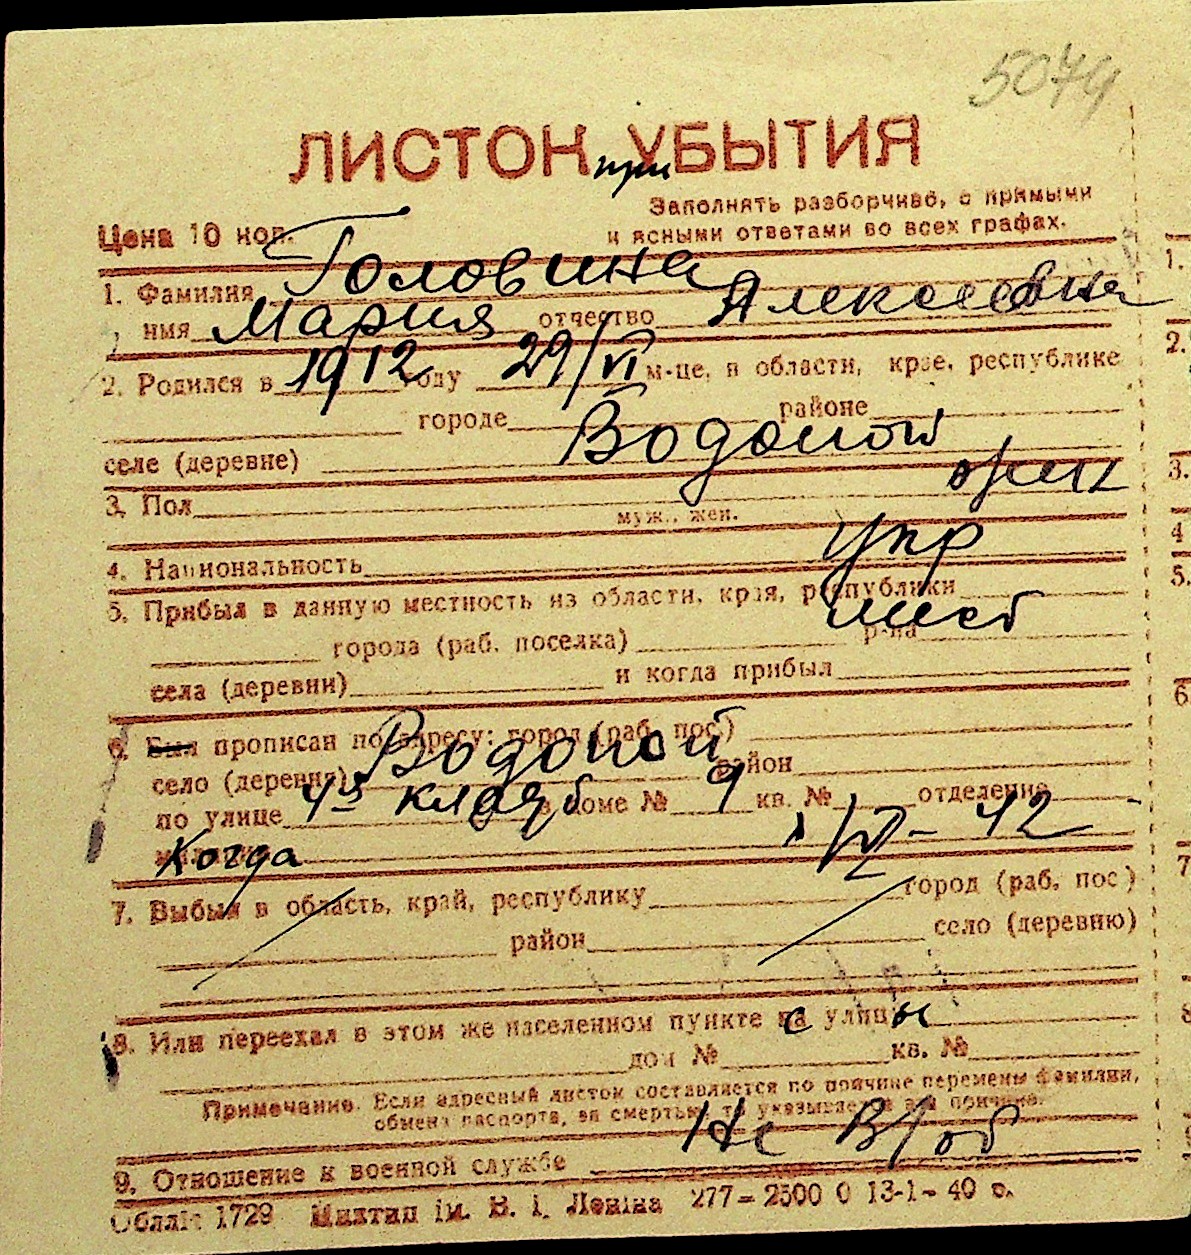 5074
ЛИСТОК УБЫТИЯ
при
Заполнять разборчиво, с прямыми
и ясными ответами во всех графах.
Цена 10 коп.
1. Фамилия Головина
имя Мария отчество Алексеевна
2. Родился в 1912 году 29/VI м-це, в области, крае, республике
городе районе
селе (деревне) Водопой
3. Пол жен
муж., жен.
4. Национальность укр
5. Прибыл в данную местность из области, края, республики
города (раб. поселка) р-на
мест
села (деревни) и когда прибыл
6. Был прописан по адресу: город (раб. пос.)
село (деревня) Водопой район
по улице в доме № 9 кв. № отделение
Когда VI-42
7. Выбыл в область, край, республику город (раб. пос)
район село (деревню)
8. Или переехал в этом же населенном пункте на улицу
дом № кв. №
Примечание. Если адресный листок составляется по причине перемены фамилии,
обмена паспорта, за смертью, то указывается эта причина.
9. Отношение к военной службе Не в/об
Обллит 1729 Миктип ім. В. І. Леніна 277-2500 0 13-1-40 р.
1.
2.
3.
4
5.
6
7
8